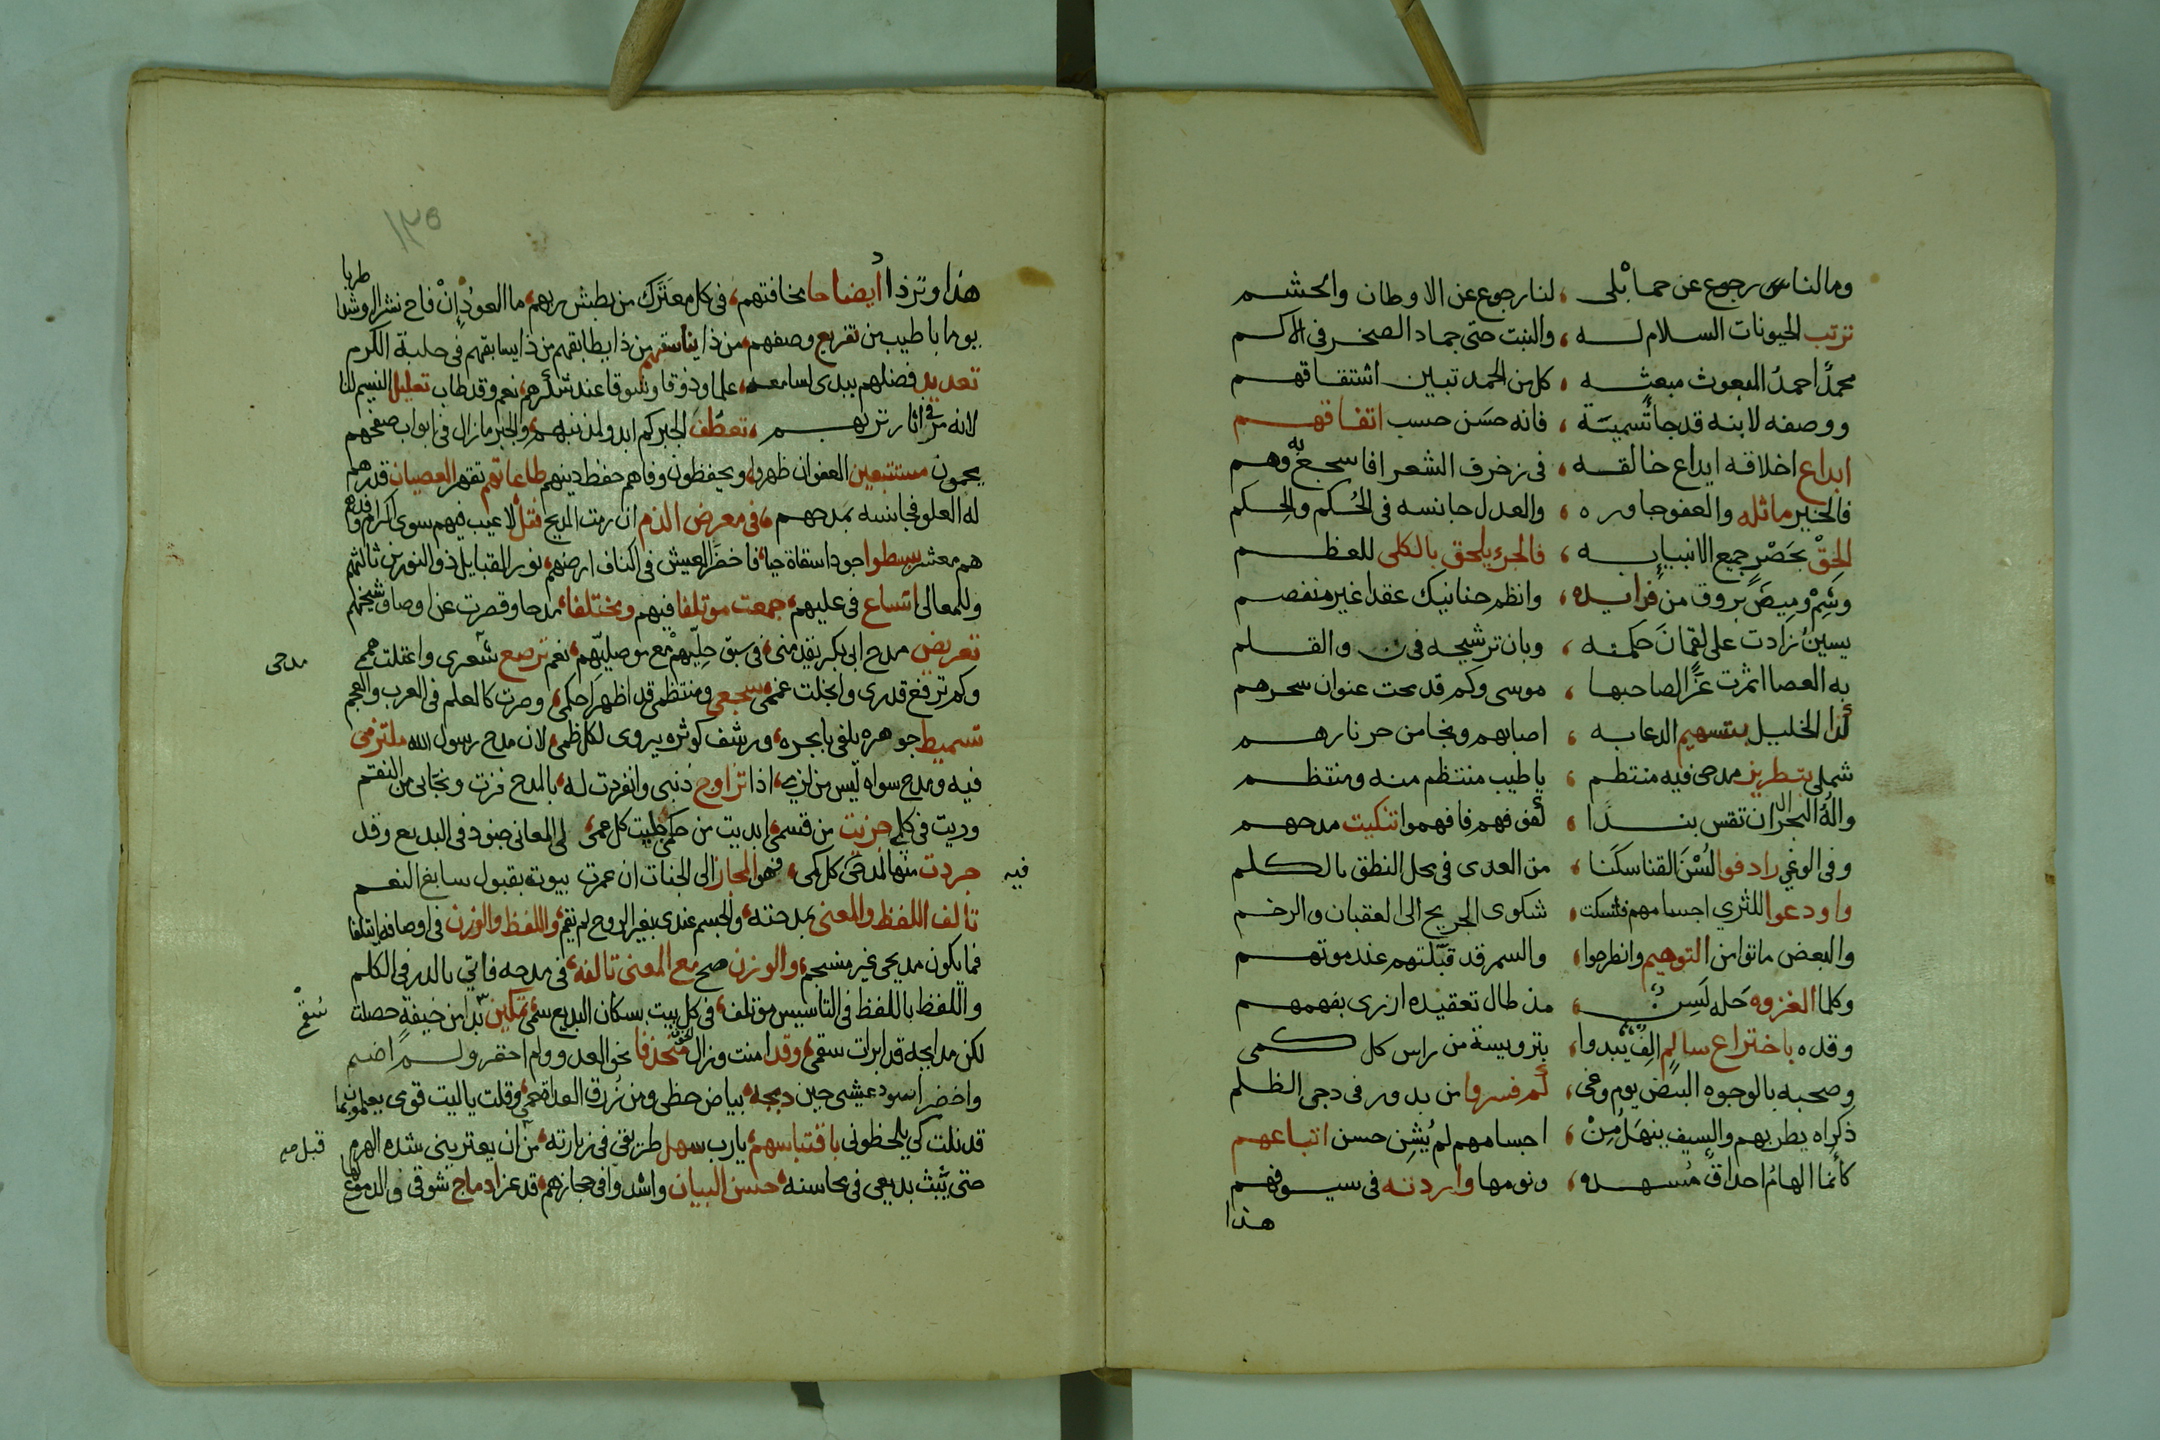 وما لناس رجوع عن حما بلى ، لنا رجوع عن الاوطان والحشم
ترتب الحيونات السلام لـه ، والنبت حتى جماد الصخر في الاكم
محمدٌ احمدُ المبعوث مبعثه ، كل من الحمد تبين اشتقاقهم
ووصفه لابنه قد جا تسمية ، فانه حسَن حسب اتفاقهم
ابداع اخلاقه ايداع خالقه ، في زخرف الشعرا فاسجع به وهم
فالخير ماثله والعفو جاوره ، والعدل جانسه في الحُكم والحِكم
الحِقْ بحَصْرِ جميع الانبيا به ، فالجزء يلحق بالكلى للعظم
وشِمْ وميضَ بروق من فرايده ، وانظم حنانيك عقدا غير منفصم
يسينُ زادت على لقمانَ حكمته ، وبان ترشيحه في ن والقلم
به العصا اثمرت عزًّا لصاحبها ، موسى وكم قد محت عنوان سحرهم
لذا الخليل بتسهيم الدعا به ، اصابهم ونجا من حر نارهم
شملى بتطريز مدحى فيه منتظم ، يا طيب منتظم منه ومنتظم
والهُ البحر ال ان تقس بندا ، لفى فهم فافهموا تنكيت مدحهم
وفى الوغى رادفوا لسُنَ القنا سكنا ، من العدى في محل النطق بالكلم
واودعوا للثرى اجسامهم فشكت ، شكوى الجريح الى العقبان والرخم
والبعض ماتوا من التوهيم وانطرحوا ، والسمر قد قبّلتهم عند موتهم
وكلما الغزوه حَله لَسِنٌ ، مذ طال تعقيده ازرى بفهمهم
وقده باختراع سالم الِفٌ يبدوا ، بترويسة من راس كل كمى
وصحبه بالوجوه البيض يوم وغى ، كم فسروا من بدور في دجى الظلم
ذكراه يطربهم والسيف ينهل مِنْ ، اجسامهم لم يُشِن حسن اتباعهم
كأنما الهامُ احداق مُسهده ، ونومها واردته في سيوفهم
هذا
هذا وتزداد أيضاحا مخافتهم ، في كل معترك من بطش ربهم ، ما العودُ إنْ فاح نشرا او شدا طربا
يوما باطيب من تفريع وصفهم ، من ذا يناسقهم من ذا يطابقهم من ذا يسابقهم في حلبة الكرم
تعديد فضلهم يبدى لسامعه ، علما وذوقا وشوقا عند ذكرهم ، نعم وقد طاب تعليل النسيم لنا
لانه مر في اثار تربهم ، تعطّف الخير كم ابدوا لمذنبهم ، والخير مازال في ابواب صفحهم
يحمون مستتبعين العفو ان ظهروا ، ويحفظون وفاهم حفظ دينهم طاعاتهم تقهر العصيان قدرهم
له العلو فجانسه بمدحهم ، في معرض الذم ان رمت المديح فقل لا عيب فيهم سوى اكرام وافدهم
هم معشر بسطوا جودا سقاه حيا ، فاخضر العيش في اكناف ارضهم ، نور القبايل ذو النورين ثالثهم
وللمعالى اتساع في عليهم ، جمعت موتلفا فيهم ومختلفا ، مدحا وقصرت عن اوصاف شيخهم
تعريض مدح ابى بكر يقدمنى ، في سبق حِلِيّهمْ مع موصليّهم ، نعم ترصع شعرى واعتلت هممى
مدحى
وكم ترفع قدرى وانجلت غممى ، سجعى ومنتظمى قد اظهرا حكمى ، وصرت كالعلم في العرب والعجم
تسميط جوهره يلفى بابحره ، ورشف كوثره يروى لكل ظمى ، لان مدح رسول الله ملتزمى
فيه ومدح سواه ليس من لزمى ، اذا تزاوج ذنبى وانفردت له ، بالمدح فزت ونجانى من النقم
وريت في كلمى جزيت من قسمى ، ابديت من حكمى جليت كل عمى ، لى المعانى جنود في البديع وقد
جردت منها لمدحى كل كمى ، فهو المجاز الى الجنات ان عمرت بيوته بقبول سابغ النعم
فيه
تالف اللفظ والمعنى بمدحته ، والجسم عندى بغير الروح لم يقم ، واللفظ والوزن في اوصافه ايتلفا
فما يكون مديحى غير منسجم ، والوزن صح مع المعنى تالفه ، في مدحه فاتي بالدر في الكلم
واللفظ باللفظ في التاسيس موتلف ، في كل بيت بسكان البديع سمى ، تمكين بدا من خيفة حصلت
سُقم
لكن مدايحه قد ابرات سقمى ، وقد امنت وزال الخوف منحذفا نحو العدو ولم احقر ولم اضم
واخضر اسود عيشى حين دبجه ، بياض حظى ومن زُرق العداة حمى ، وقلت يا ليت قومى يعلمون بما
قد نلت كى يلحظونى باقتباسهم ، يا رب سهل طريقى في زيارته ، من ان يعترينى شدة الهرم
قبل صـ
حتى يَبُث بديعى في محاسنه ، حسن البيان واشدوا في حجازهم ، قد عز ادماج شوقى والدموع لها